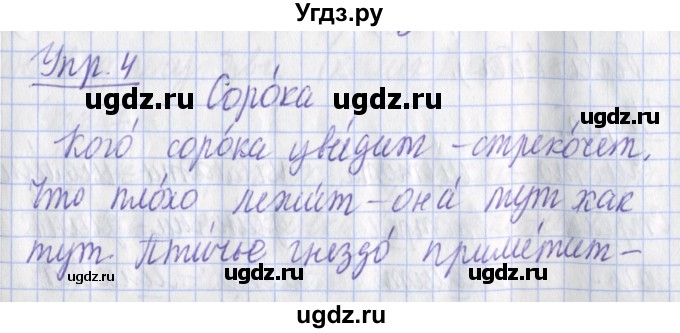 Угдз.ру
Упр. 4
ugdz.ru Соро́ка ugdz.ru
Кого́ соро́ка уви́дит - стреко́чет.
ugdz.ru
Что пло́хо лежи́т - она́ тут как
тут. Пти́чье гнездо́ приме́тит -
ugdz.ru ugdz.ru ugdz.ru